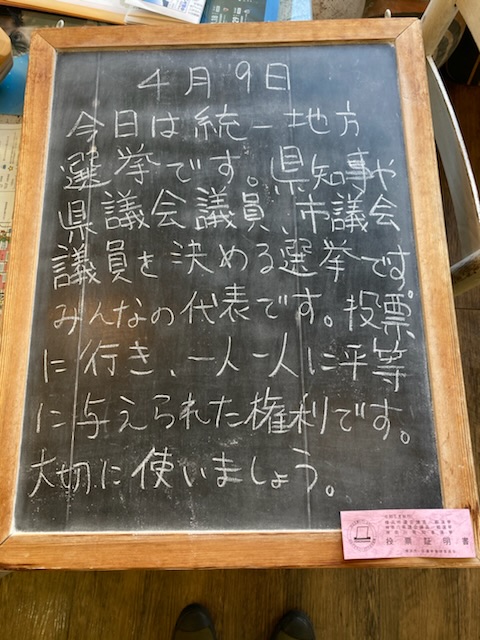 4月9日
今日は統一地方
選挙です。県知事や
県議会議員、市議会
議員を決める選挙です。
みんなの代表です。投票
に行き、一人一人に平等
に与えられた権利です。
大切に使いましょう。
投票証明書